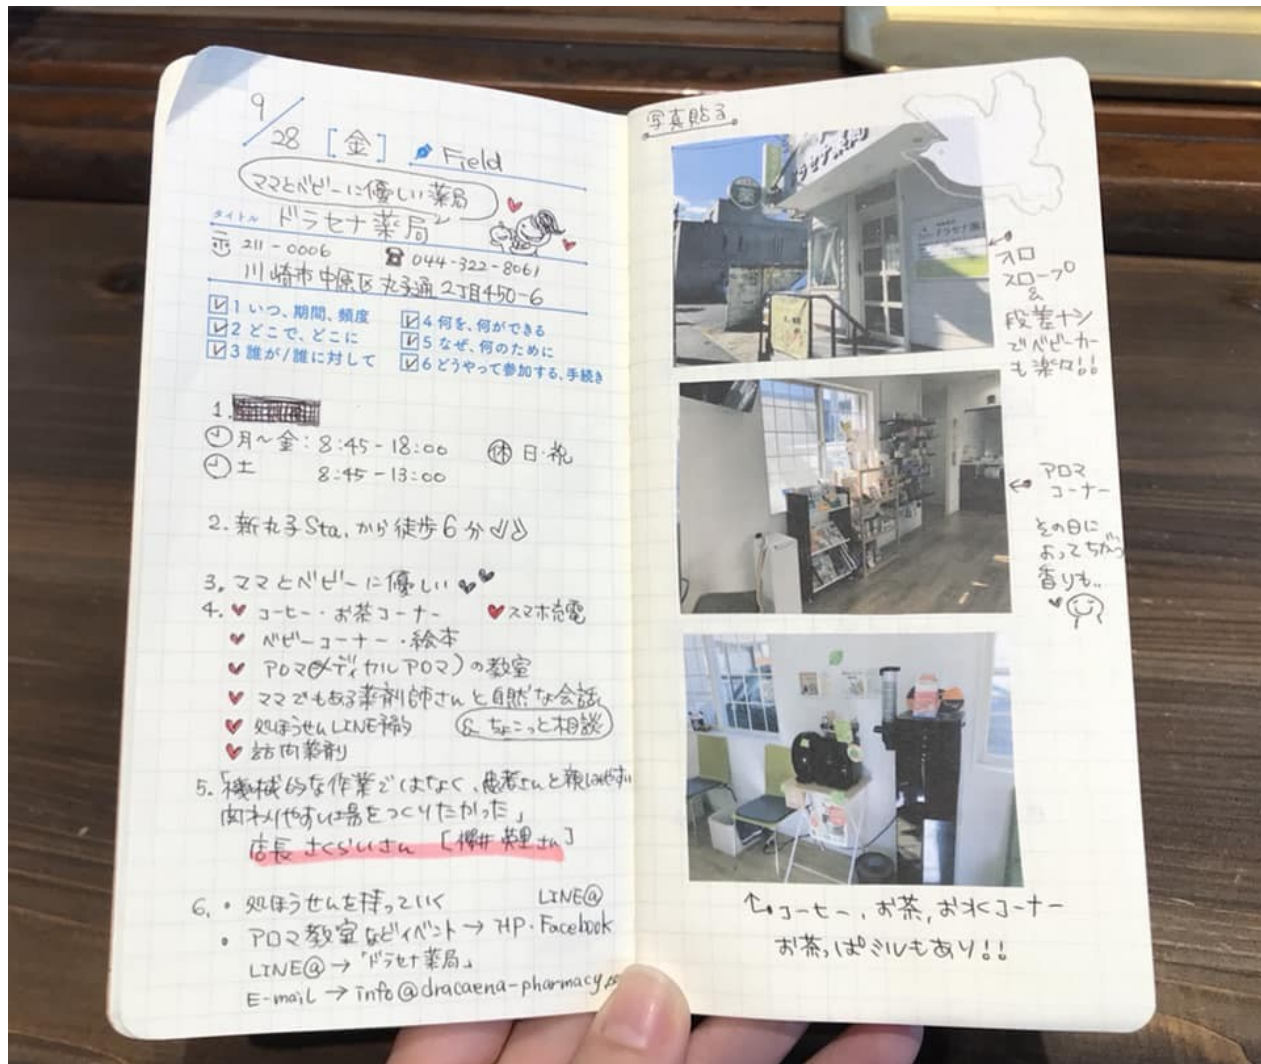 9/28 [金] Field
ママとベビーに優しい薬局
タイトル ドラセナ薬局
〒211-0006 ☎044-322-8061
川崎市中原区丸子通2丁目450-6
☑1 いつ、期間、頻度
☑2 どこで、どこに
☑3 誰が/誰に対して
☑4 何を、何ができる
☑5 なぜ、何のために
☑6 どうやって参加する、手続き
1.
月〜金:8:45-18:00 休 日・祝
土 8:45-13:00
2. 新丸子Sta.から徒歩6分
3. ママとベビーに優しい
4. ♥ コーヒー・お茶コーナー ♥スマホ充電
♥ ベビーコーナー・絵本
♥ アロマ(メディカルアロマ)の教室
♥ ママでもある薬剤師さんと自然な会話
♥ 処ほうせんLINE予約 & ちょこっと相談
♥ 訪問薬剤
5.「機械的な作業ではなく、患者さんと親しみやすい
関わりやすい場をつくりたかった」
店長 さくらいさん [櫻井 英里さん]
6. ・ 処ほうせんを持っていく LINE@
・ アロマ教室などイベント→HP・Facebook
LINE@→「ドラセナ薬局」
E-mail → info@dracaena-pharmacy
写真貼る
薬
ドラセナ薬局
スロープ
&
段差ナシ
でベビーカー
も楽々!!
アロマ
コーナー
その日に
よってちがう
香りも..
コーヒー、お茶、お水コーナー
お茶っぱミルもあり!!